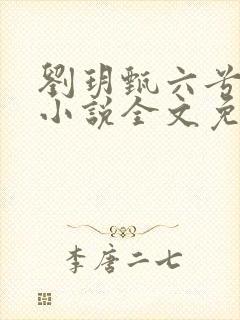 劉玥甄六兮
小說全文免
李唐二七